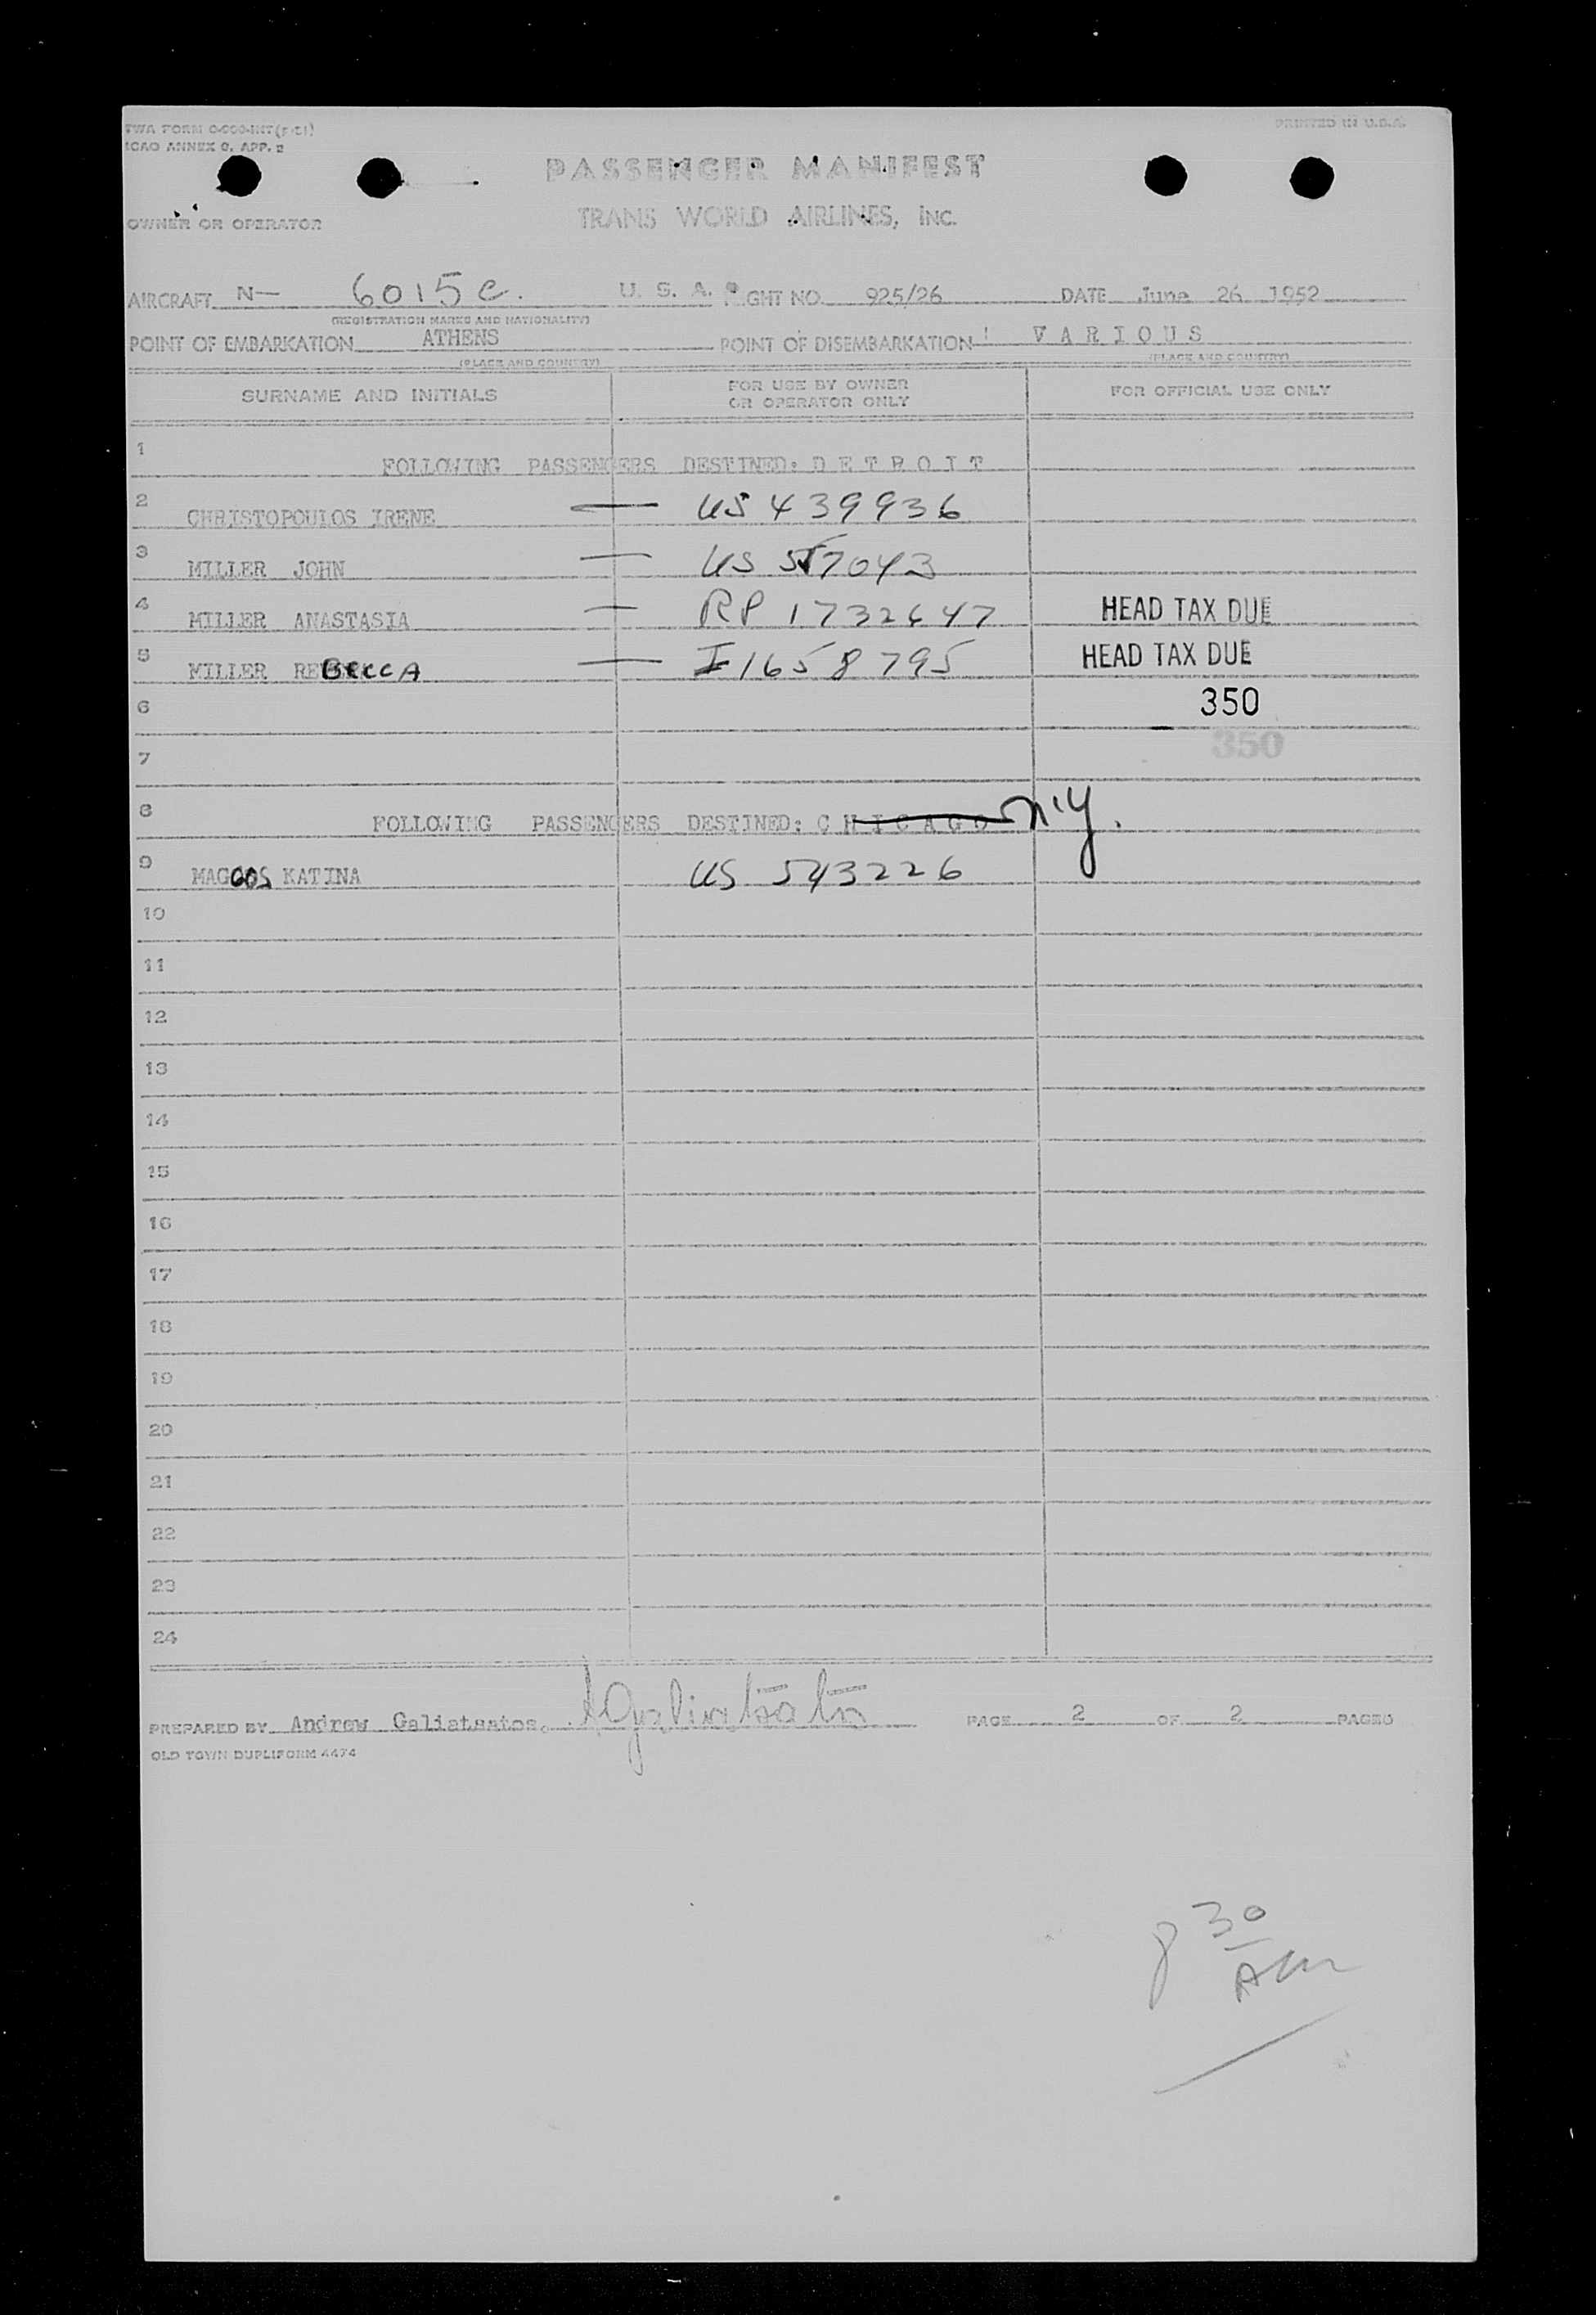 ICAO ANNEX 9, APP. 2
PRINTED IN U.S.A.
PASSENGER MANIFEST
OWNER OR OPERATOR
TRANS WORLD AIRLINES, INC.
AIRCRAFT N— 6015C. U. S. A. GHT NO. 925/26 DATE June 26 1952
(REGISTRATION MARKS AND NATIONALITY)
POINT OF EMBARKATION ATHENS POINT OF DISEMBARKATION VARIOUS
(PLACE AND COUNTRY) (PLACE AND COUNTRY)
SURNAME AND INITIALS FOR USE BY OWNER OR OPERATOR ONLY FOR OFFICIAL USE ONLY
1 FOLLOWING PASSENGERS DESTINED: DETROIT
2 CHRISTOPOULOS IRENE — US 439936
3 MILLER JOHN — US 57043
4 MILLER ANASTASIA — RP 1732647 HEAD TAX DUE
5 MILLER REBECCA — I1658795 HEAD TAX DUE
6 350
7 350
8 FOLLOWING PASSENGERS DESTINED: CHICAGO N.Y.
9 MAGGOS KATINA US 543226
10
11
12
13
14
15
16
17
18
19
20
21
22
23
24
PREPARED BY Andrew Galiatsatos. AGaliatsatos PAGE 2 OF 2 PAGES
OLD TOWN DUPLIFORM 4474
8 30
AM